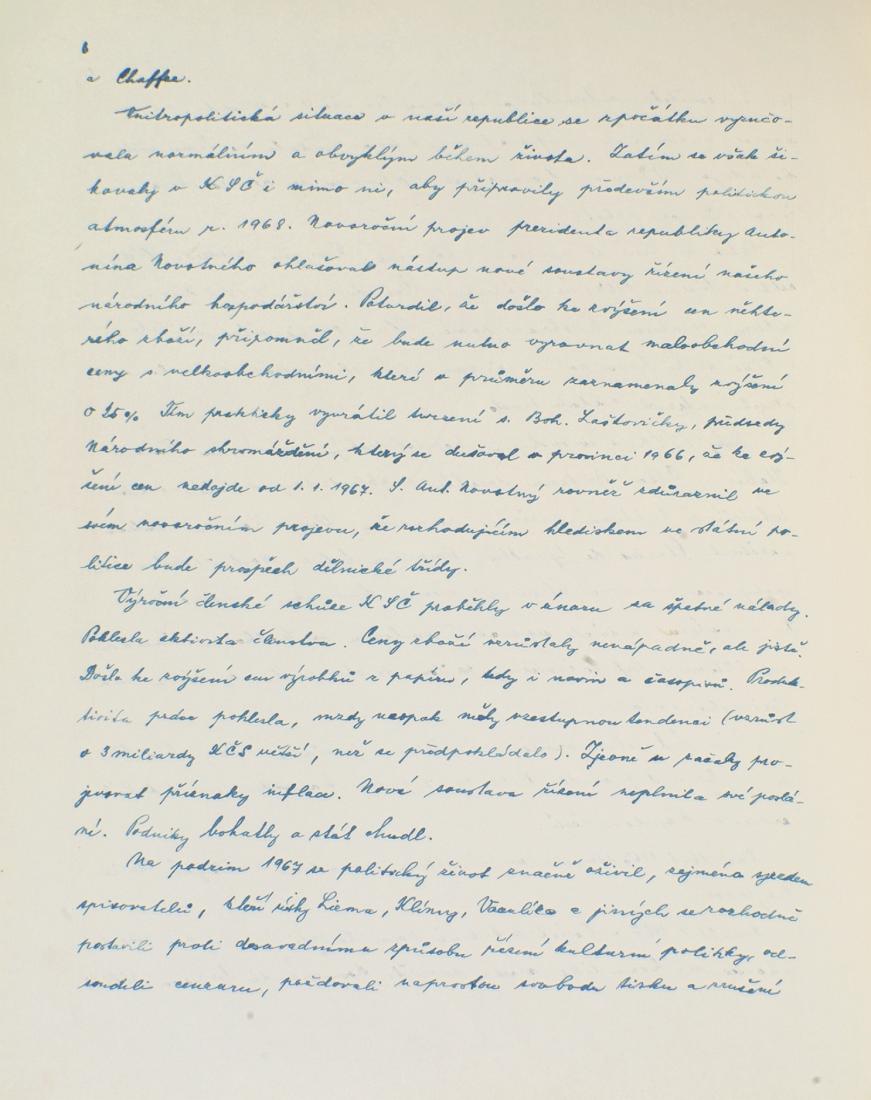 a Chaffee.
Vnitropolitická situace v naší republice se zpočátku vyznačo-
vala normálním a obvyklým během života. Zatím se však ši-
kovaly v KSČ i mimo ni, aby připravily především politickou
atmosféru r. 1968. Novoroční projev prezidenta republiky Anto-
nína Novotného ohlašoval nástup nové soustavy řízení našeho
národního hospodářství. Potvrdil, že došlo ke zvýšení cen někte-
rého zboží, připomněl, že bude nutno vyrovnat maloobchodní
ceny s velkoobchodními, které v průměru zaznamenaly zvýšení
o 25% Tím prakticky vyvrátil tvrzení s. Boh. Laštovičky, předsedy
Národního shromáždění, který se dušoval v prosinci 1966, že ke zvý-
šení cen nedojde od 1.1.1967. S. Ant. Novotný rovněž zdůraznil ve
svém novoročním projevu, že rozhodujícím hlediskem ve státní po-
litice bude prospěch dělnické třídy.
Výroční členské schůze KSČ proběhly v únoru za špatné nálady.
Poklesla aktivita členstva. Ceny zboží vzrůstaly nenápadně, ale jistě.
Došlo ke zvýšení cen výrobků z papíru, tedy i novin a časopisů. Produk-
tivita práce poklesla, mzdy naopak měly vzestupnou tendenci (vzrůst
o 3 miliardy KČS větší, než se předpokládalo). Zjevně se začaly pro-
jevovat příznaky inflace. Nová soustava řízení neplnila své poslá-
ní. Podniky bohatly a stát chudl.
Na podzim 1967 se politický život značně oživil, zejména sjezdem
spisovatelů, kteří ústy Liema, Klímy, Vaculíka a jiných se rozhodně
postavili proti dosavadnímu způsobu řízení kulturní politiky, od-
soudili cenzuru, požadovali naprostou svobodu tisku a zrušení